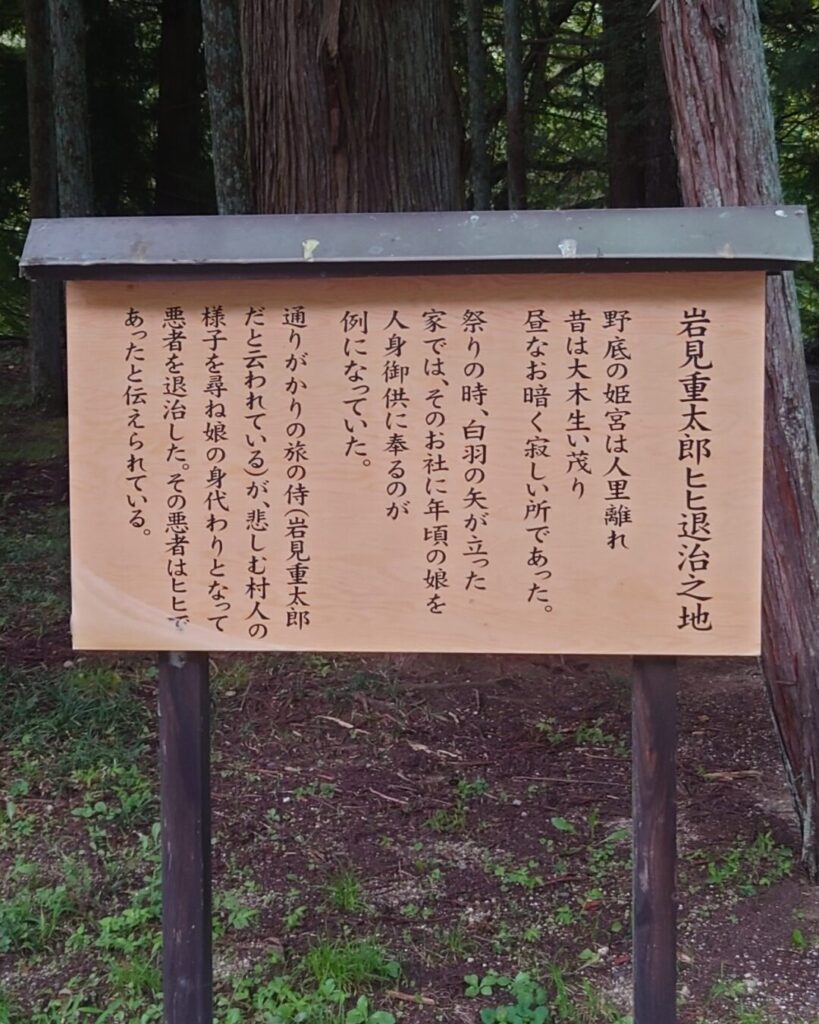 岩見重太郎ヒヒ退治之地
野底の姫宮は人里離れ
昔は大木生い茂り
昼なお暗く寂しい所であった。
祭りの時、白羽の矢が立った
家では、そのお社に年頃の娘を
人身御供に奉るのが
例になっていた。
通りがかりの旅の侍(岩見重太郎
だと云われている)が、悲しむ村人の
様子を尋ね娘の身代わりとなって
悪者を退治した。その悪者はヒヒで
あったと伝えられている。